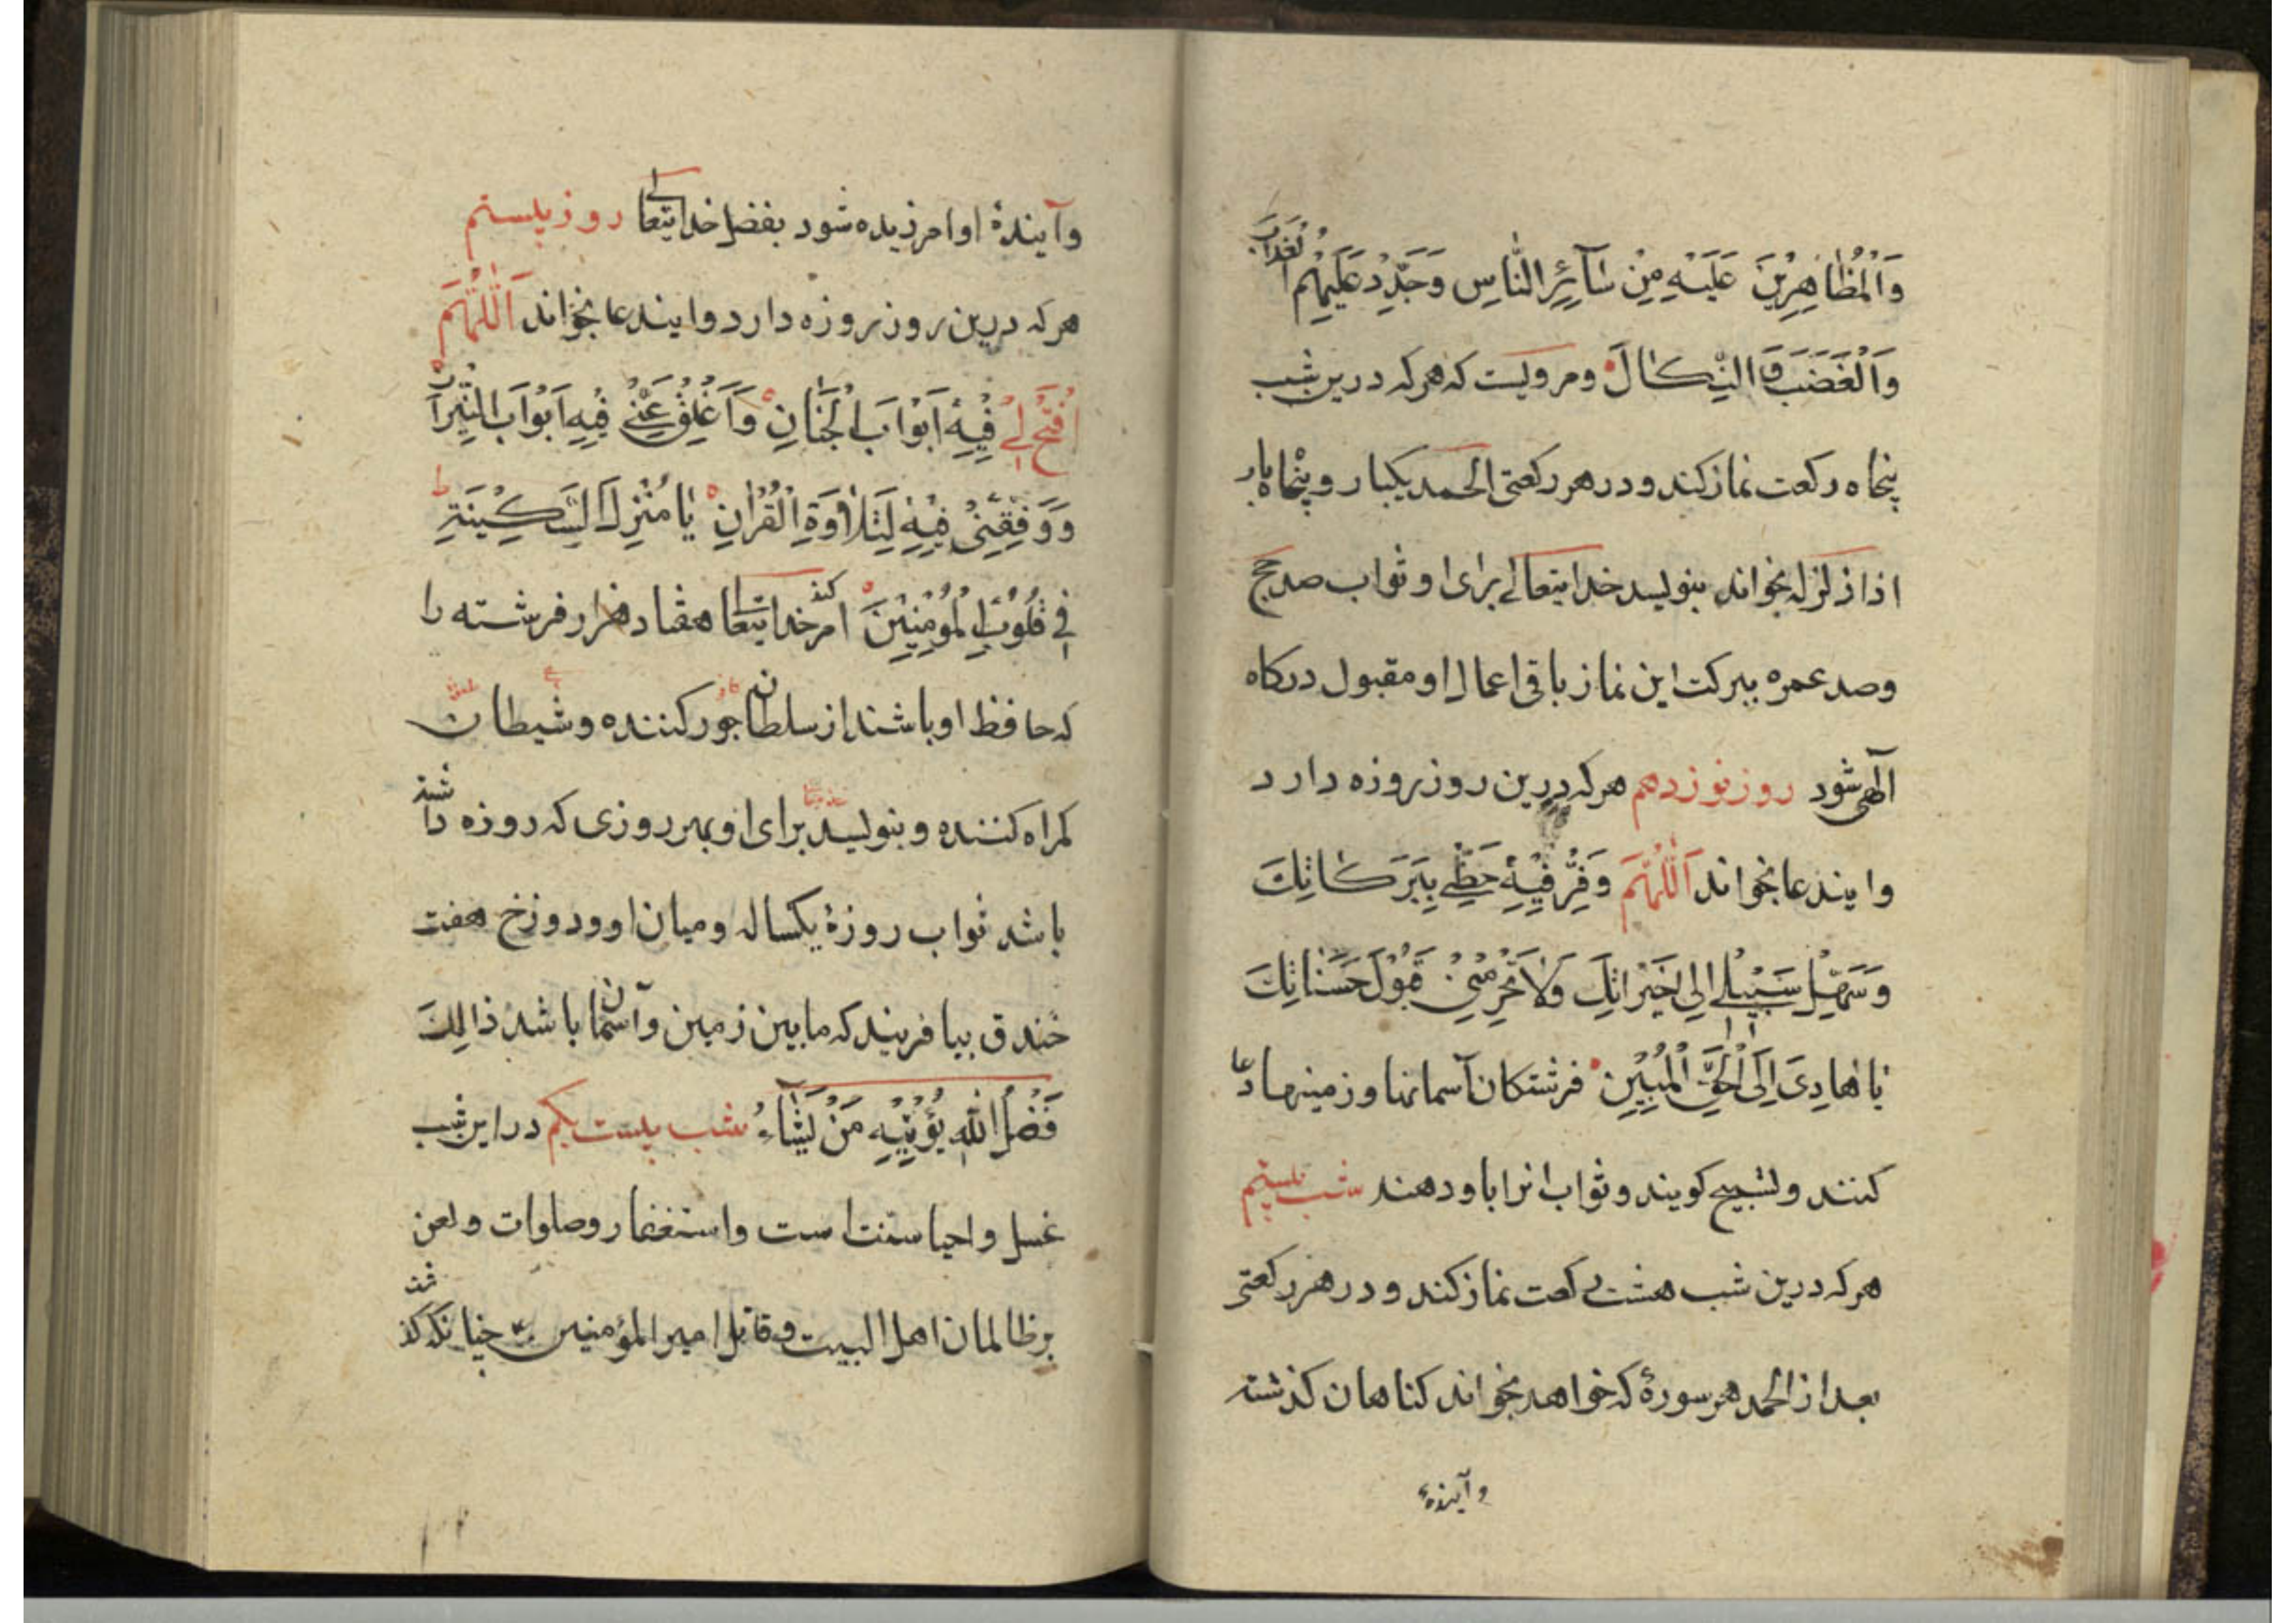 وَالْمُظَاهِرِينَ عَلَيْهِ مِنْ سَآئِرِ النَّاسِ وَجَدِّدْ عَلَيْهِمُ الْعَذَابَ
وَالْغَضَبَ وَالنَّكَالَ ومرویست که هرکه درین شب
پنجاه رکعت نماز کند و در هر رکعتی الحمد یکبار و پنجاه بار
اذا زلزله بخواند بنویسد خدایتعالی برای او ثواب صد حج
وصد عمره ببرکت این نماز باقی اعمال او مقبول درکاه
آلهی شود روز نوزدهم هرکه درین روز روزه دارد
وایندعا بخواند اَللّٰهُمَّ وَفِّرْ فِيْهِ حَظِّي بِبَرَكَاتِكَ
وَسَهِّلْ سَبِيْلِي اِلٰى خَيْرَاتِكَ وَلَا تَحْرِمْنِيْ قَبُوْلَ حَسَنَاتِكَ
يَا هَادِيَ اِلَى الْحَقِّ الْمُبِيْنِ فرشتکان آسمانها و زمینها دعا
کنند و تسبیح کویند و ثواب انرا باو دهند شب بیستم
هرکه درین شب هشت رکعت نماز کند و در هر رکعتی
بعد از الحمد هر سورۀ که خواهد بخواند کناهان کذشته
وآیندۀ
وآیندۀ او امرزیده شود بفضل خدایتعالی روز بیستم
هرکه درین روز روزه دارد وایندعا بخواند اَللّٰهُمَّ
افْتَحْ لِيْ فِيْهِ اَبْوَابَ الْجَنَانِ وَاَغْلِقْ عَنِّيْ فِيْهِ اَبْوَابَ النِّيْرَانِ
وَوَفِّقْنِيْ فِيْهِ لِتِلَاوَةِ الْقُرْاٰنِ يَا مُنْزِلَ السَّكِيْنَةِ
فِي قُلُوْبِ الْمُؤْمِنِيْنَ امر کند خدایتعالی هفتاد هزار فرشته را
که حافظ او باشند از سلطان جور کننده و شیطان
کمراه کننده و بنویسد برای او بهر روزی که روزه داشته
باشد ثواب روزۀ یکساله و میان او و دوزخ هفت
خندق بیافریند که مابین زمین و آسمان باشد ذَالِكَ
فَضْلُ اللّٰهِ يُؤْتِيْهِ مَنْ يَشَآءُ شب بیست یکم در این شب
غسل و احیا سنت است و استغفار و صلوات و لعن
بر ظالمان اهل البیت و قاتل امیر المؤمنین ع چنانکه کذشت